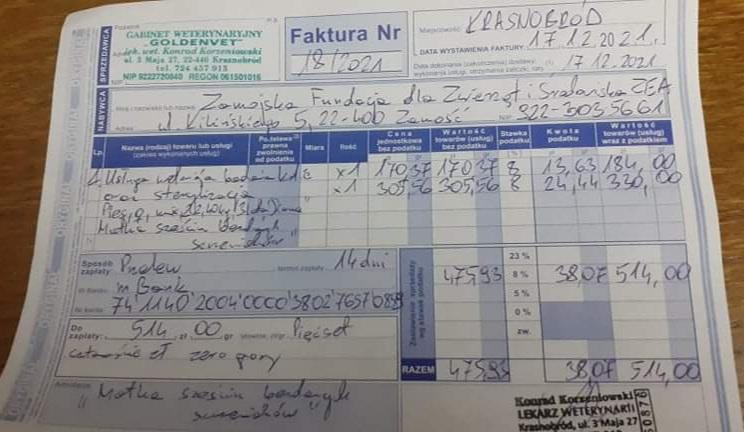 GABINET WETERYNARYJNY
„GOLDENVET"
lek. wet. Konrad Korzeniowski
ul. 3 Maja 27, 22-440 Krasnobród
tel. 724 457 913
NIP 9222720840 REGON 061501016
SPRZEDAWCA
Faktura Nr
18/2021
Miejscowość: KRASNOBRÓD
DATA WYSTAWIENIA FAKTURY: 17.12.2021.
17.12.2021
NABYWCA
Imię i nazwisko lub nazwa: Zamojska Fundacja dla Zwierząt i Środowiska ZEA
Adres ul. Kilińskiego 5, 22-400 Zamość NIP 922-303 5661
Lp. Nazwa (rodzaj) towaru lub usługi (zakres wykonanych usług) Podstawa prawna zwolnienia od podatku Miara Ilość Cena jednostkowa bez podatku Wartość towarów (usług) bez podatku Stawka podatku Kwota podatku Wartość towarów (usług) wraz z podatkiem
x1 170,37 170,37 8 13,63 184,00
oraz sterylizacja x1 305,56 305,56 8 24,44 330,00
Matka sześciu
Sposób zapłaty: Przelew termin zapłaty 14 dni
m Bank
Nr konta 74 1140 2004 0000 3802 7657 0889
Zestawienie sprzedaży wg stawek podatku
23 %
475,93 8 % 38,07 514,00
5 %
0 %
zw.
Do zapłaty: 514 zł 00 gr słownie Pięćset
czternaście zł zero groszy
RAZEM 475,93 38,07 514,00
„Matka sześciu
Konrad Korzeniowski
LEKARZ WETERYNARII
Krasnobród, ul. 3 Maja 27
ORYGINAŁ